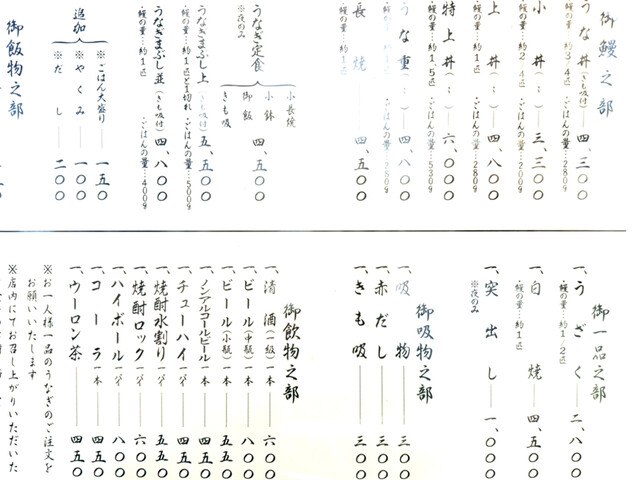 御鰻之部
うな丼(きも吸付)四、三〇〇
・鰻の量…約3/4匹 ・ごはんの量…280g
小丼(〃)三、三〇〇
・鰻の量…約2/4匹 ・ごはんの量…200g
上丼(〃)四、八〇〇
・鰻の量…約1匹 ・ごはんの量…280g
特上丼(〃)六、〇〇〇
・鰻の量…約1.5匹 ・ごはんの量…530g
うな重(〃)四、八〇〇
・ごはんの量…280g
長焼 四、五〇〇
・鰻の量…約1匹
うなぎ定食
※夜のみ
小長焼
小鉢
御飯
きも吸
四、五〇〇
うなぎまぶし上(きも吸付)五、五〇〇
・鰻の量…約1匹と1切れ ・ごはんの量…500g
うなぎまぶし並(きも吸付)四、八〇〇
・鰻の量…約1匹 ・ごはんの量…400g
追加
※ごはん大盛り 一五〇
※やくみ 一〇〇
※だし 二〇〇
御飯物之部
御一品之部
一、うざく 二、八〇〇
・鰻の量…約1/2匹
一、白焼 四、五〇〇
・鰻の量…約1匹
一、突出し 一、〇〇〇
※夜のみ
御吸物之部
一、吸物 三五〇
一、赤だし 三〇〇
一、きも吸 三〇〇
御飲物之部
一、清酒(一級)一本 六〇〇
一、ビール(中瓶)一本 八〇〇
一、ビール(小瓶)一本 五五〇
一、ノンアルコールビール 一本 四五〇
一、チューハイ 一パイ 四五〇
一、焼酎水割り 一パイ 五五〇
一、焼酎ロック 一パイ 六〇〇
一、ハイボール 一パイ 八〇〇
一、コーラ 一本 四五〇
一、ウーロン茶 四五〇
※お一人様一品のうなぎのご注文を
お願いいたします
※店内にてお召し上がりいただいた